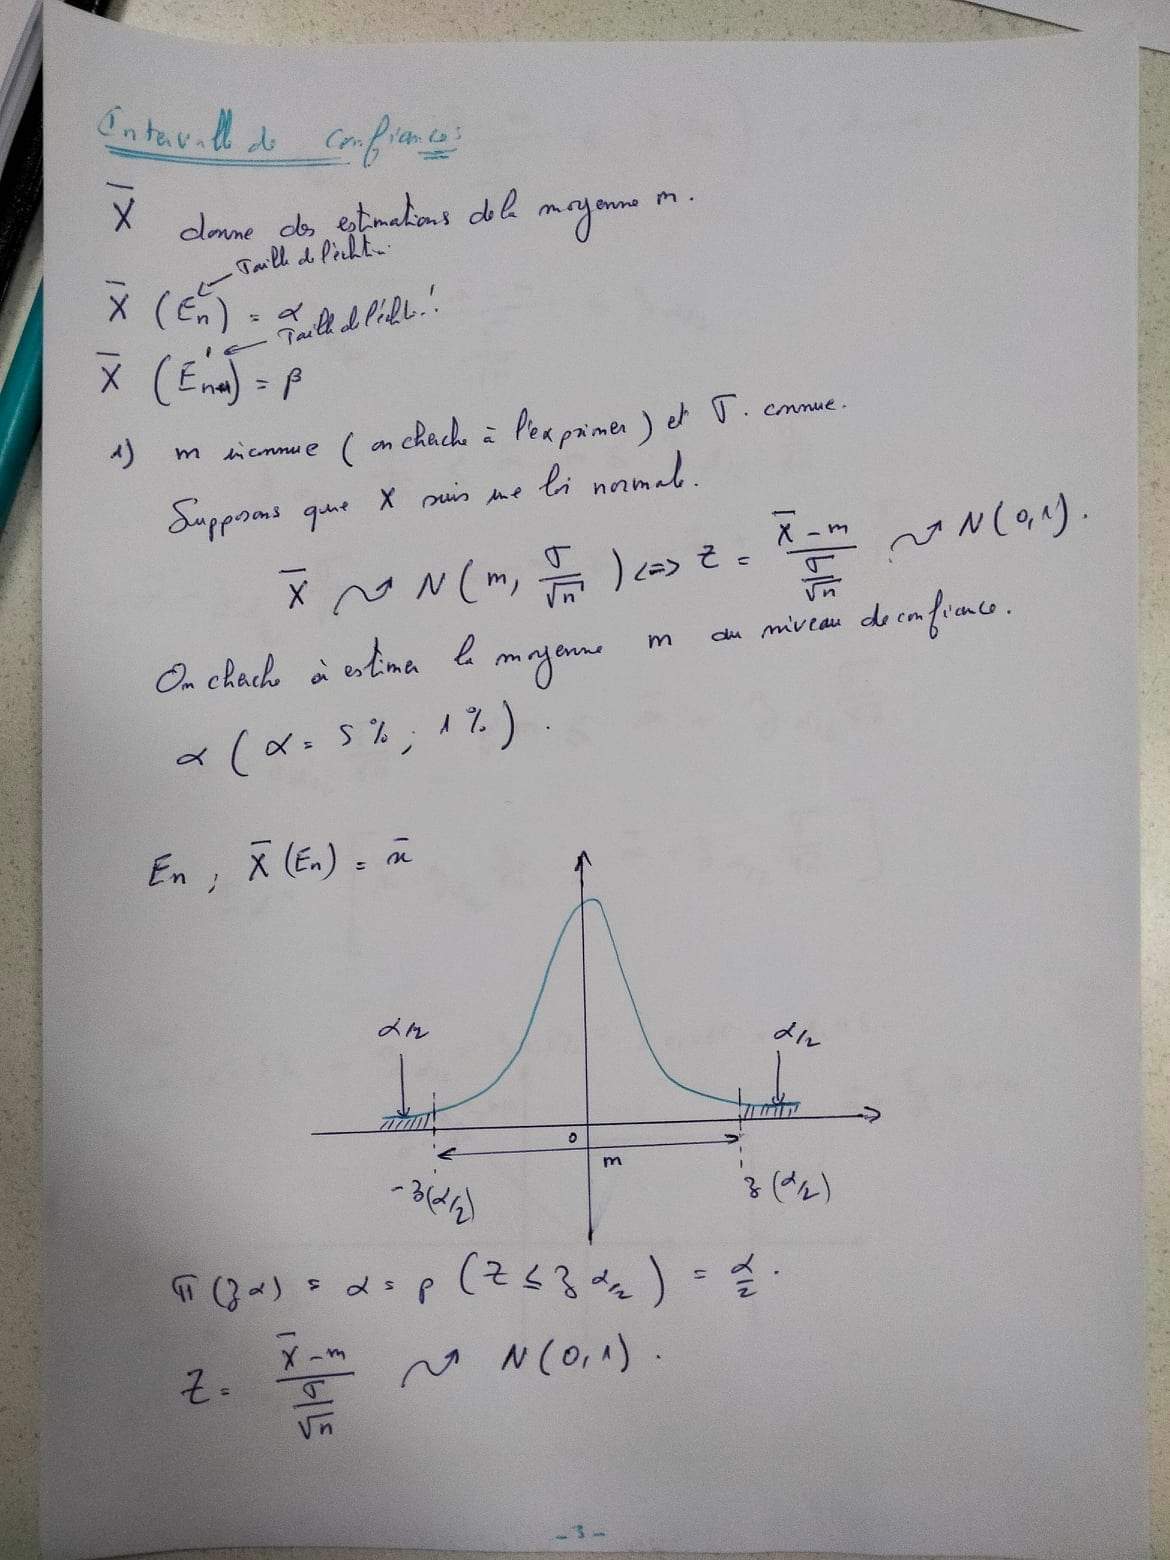 Intervalle de confiances
X̄ donne des estimations de la moyenne m.
Taille de l'écht..
X̄ (En) = α
Taille de l'écht..'
X̄ (E'n) = β
1) m inconnue (on cherche à l'exprimer) et σ. connue.
Supposons que X suis une loi normale.
X̄ ⤳ N(m, σ/√n) <=> Z = (X̄ - m)/(σ/√n) ⤳ N(0,1).
On cherche à estimer la moyenne m au niveau de confiance.
α (α = 5%, 1%).
En ; X̄ (En) = x̄
α/2 α/2
0
m
-z(α/2) z(α/2)
π(zα) = α = p (Z ≤ z α/2) = α/2.
Z = (X̄ - m)/(σ/√n) ⤳ N(0,1).
- 3 -